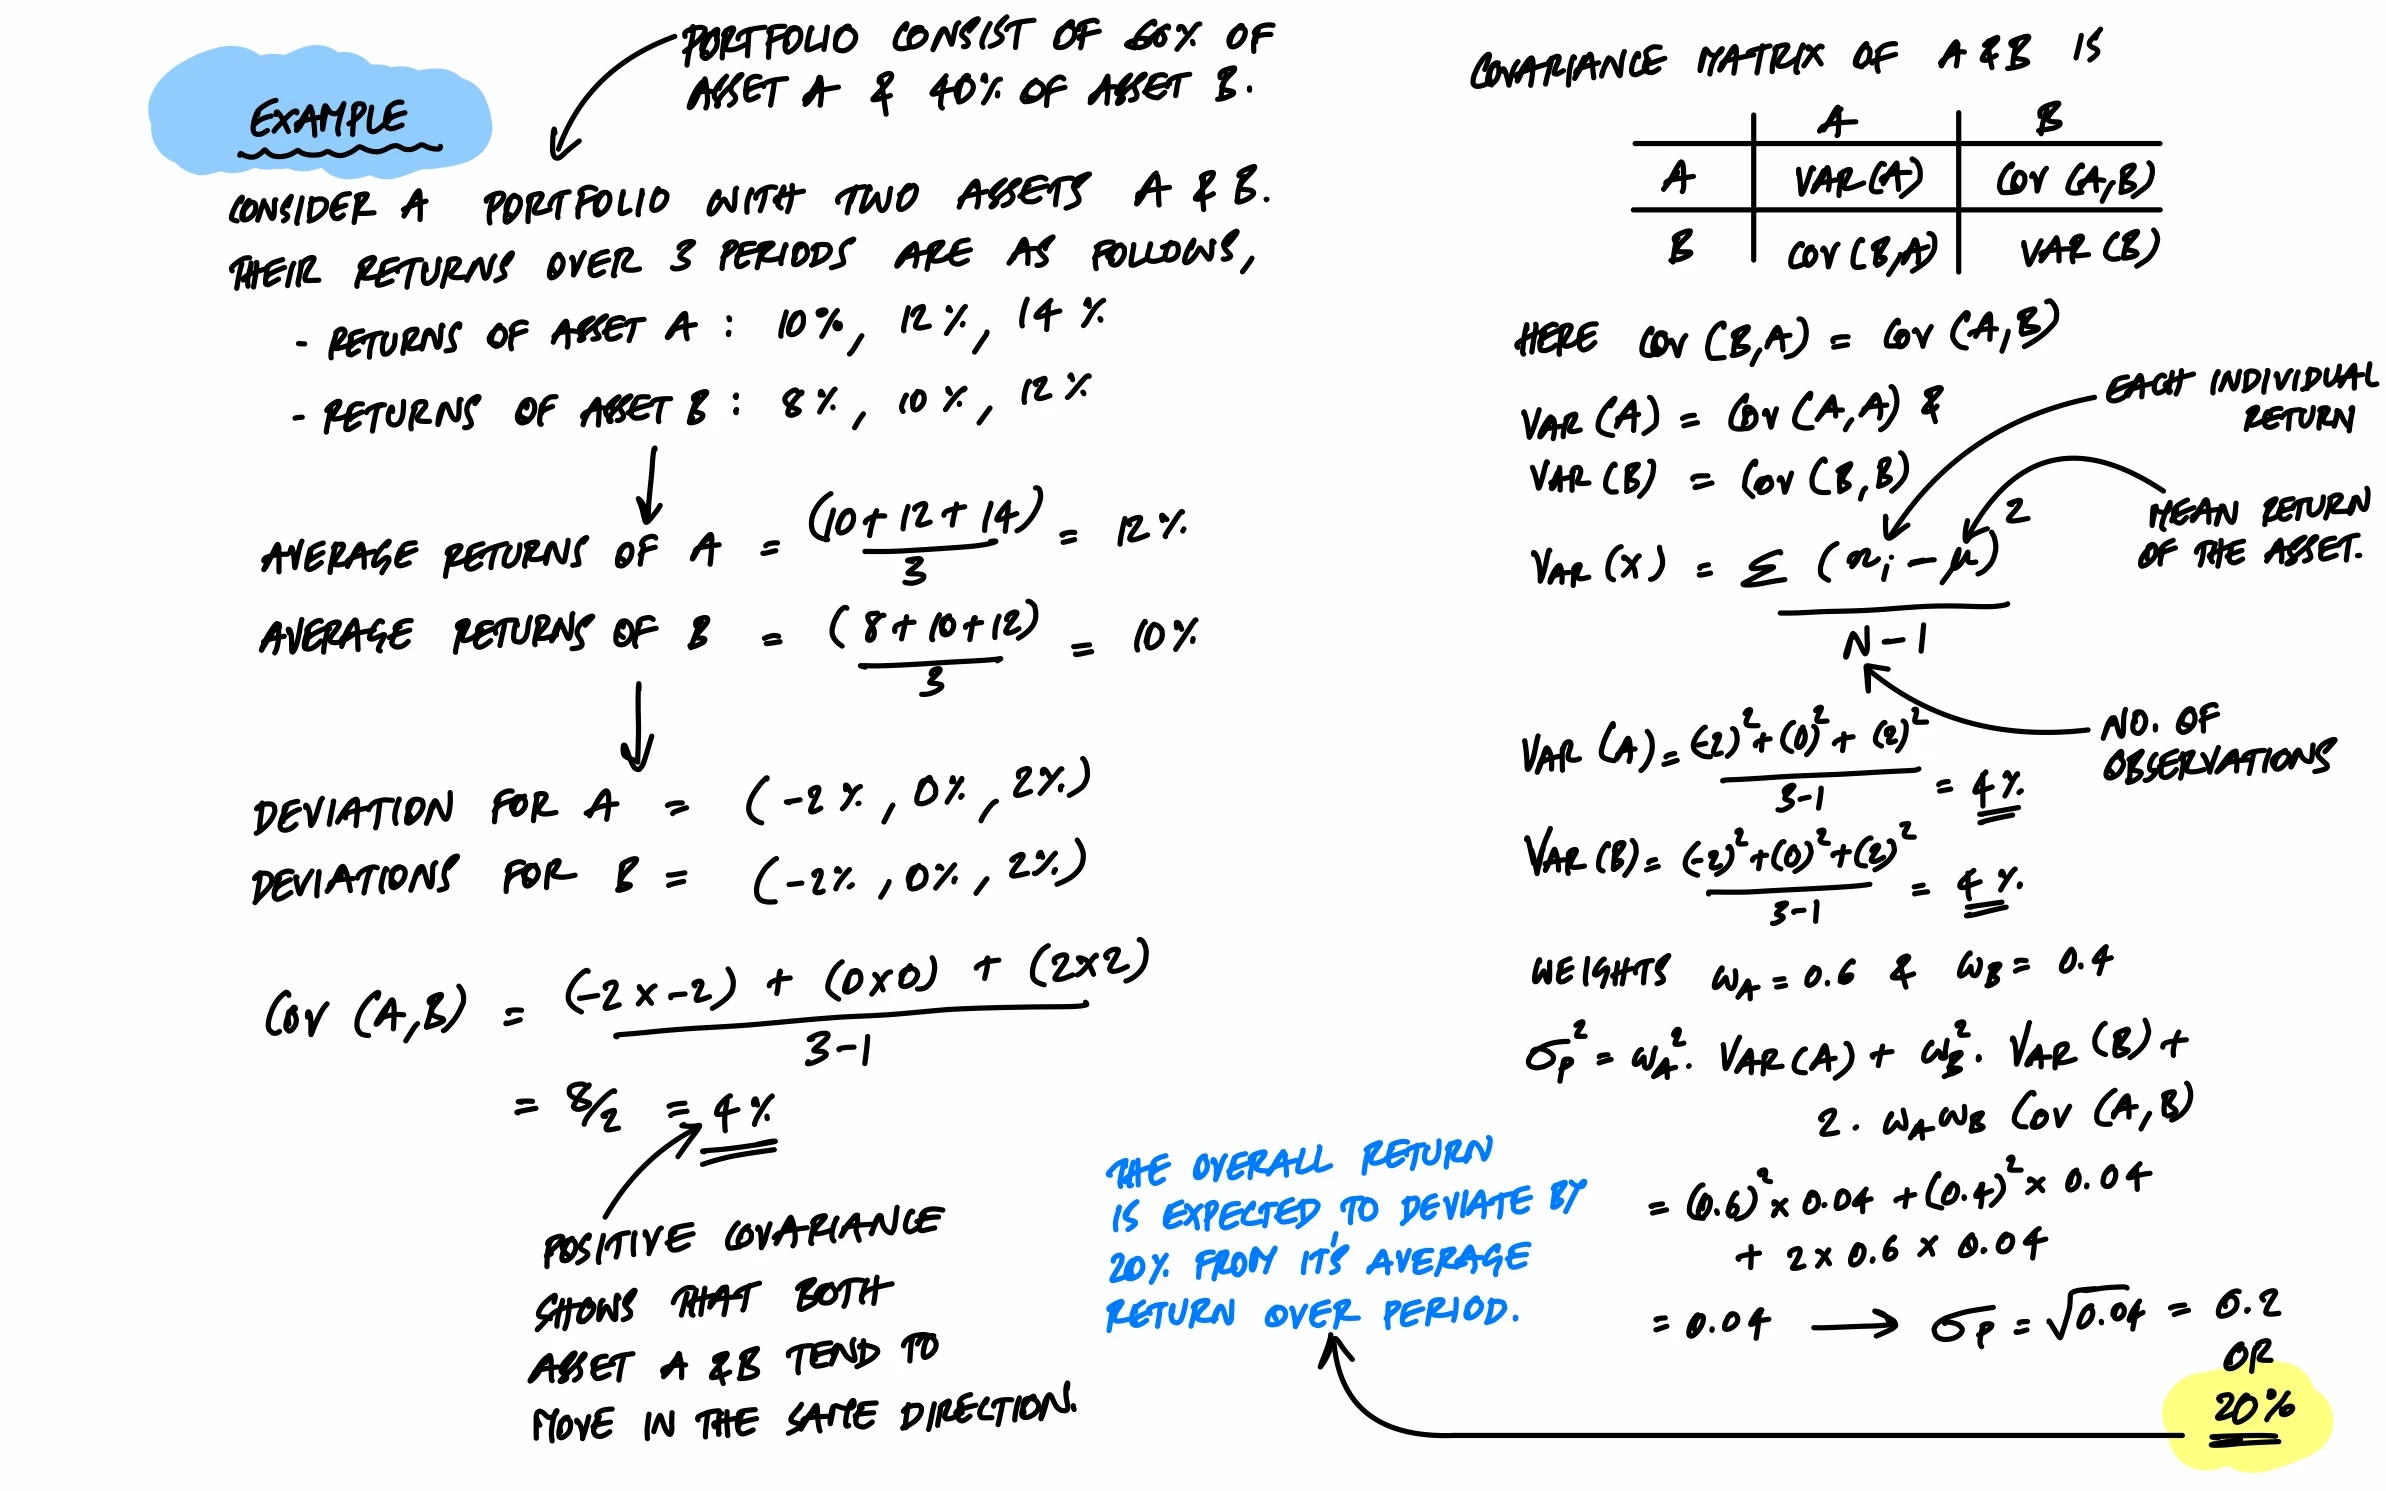 EXAMPLE
PORTFOLIO CONSIST OF 60% OF
ASSET A & 40% OF ASSET B.
CONSIDER A PORTFOLIO WITH TWO ASSETS A & B.
THEIR RETURNS OVER 3 PERIODS ARE AS FOLLOWS,
- RETURNS OF ASSET A : 10%, 12%, 14%
- RETURNS OF ASSET B : 8%, 10%, 12%
AVERAGE RETURNS OF A = (10+12+14)/3 = 12%
AVERAGE RETURNS OF B = (8+10+12)/3 = 10%
DEVIATION FOR A = (-2%, 0%, 2%)
DEVIATIONS FOR B = (-2%, 0%, 2%)
COV (A,B) = (-2 x -2) + (0x0) + (2x2)
3-1
= 8/2 = 4%
POSITIVE COVARIANCE
SHOWS THAT BOTH
ASSET A & B TEND TO
MOVE IN THE SAME DIRECTION.
COVARIANCE MATRIX OF A & B IS
A B
A VAR(A) COV (A,B)
B COV (B,A) VAR (B)
HERE COV (B,A) = COV (A,B)
VAR (A) = COV (A,A) &
VAR (B) = COV (B,B)
EACH INDIVIDUAL
RETURN
MEAN RETURN
OF THE ASSET.
VAR (X) = Σ (xi - μ)²
N-1
NO. OF
OBSERVATIONS
VAR (A) = (-2)² + (0)² + (2)²
3-1 = 4%
VAR (B) = (-2)² + (0)² + (2)²
3-1 = 4%
WEIGHTS WA = 0.6 & WB = 0.4
σP² = WA². VAR(A) + WB². VAR (B) +
2. WA WB COV (A,B)
= (0.6)² x 0.04 + (0.4)² x 0.04
+ 2 x 0.6 x 0.04
= 0.04 → σP = √0.04 = 0.2
OR
20%
THE OVERALL RETURN
IS EXPECTED TO DEVIATE BY
20% FROM IT'S AVERAGE
RETURN OVER PERIOD.